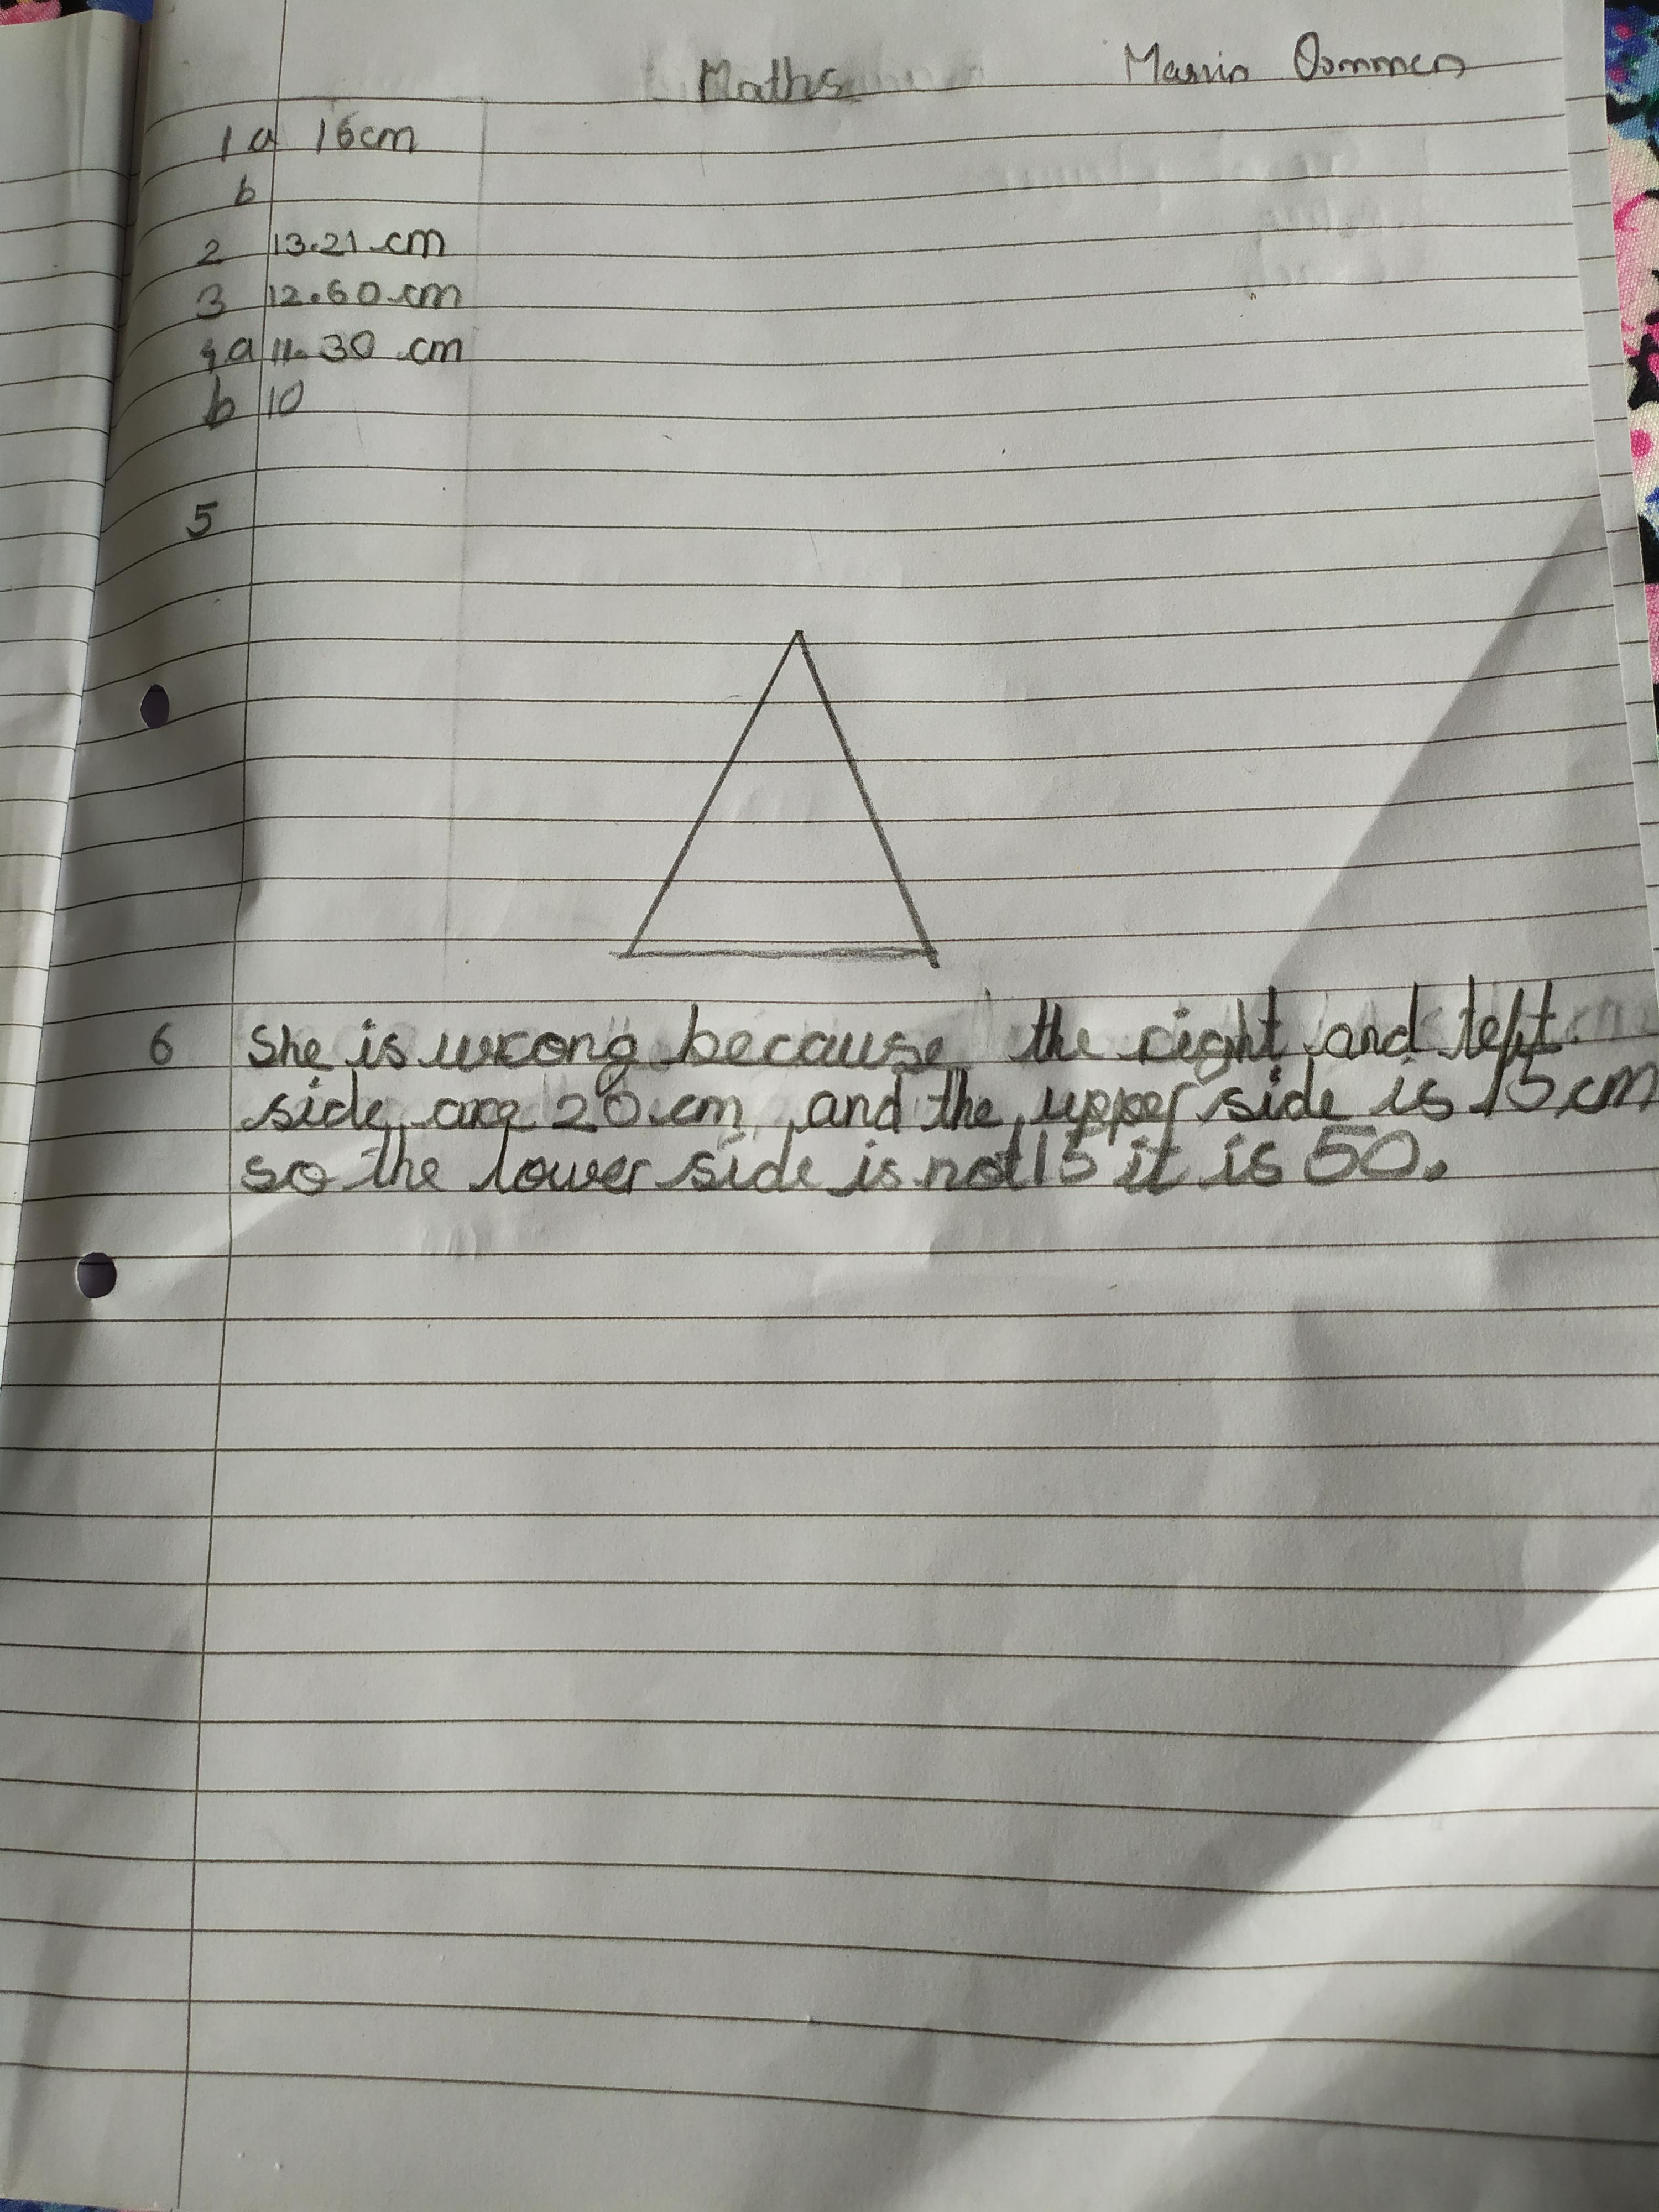 Maths
1 a 16cm
b
2 13.21 cm
3 12.60 cm
4 a 11.30 cm
b 10
5
6 She is wrong because the right and left
side are 20 cm and the upper side is 15 cm
so the lower side is not 15 it is 50.